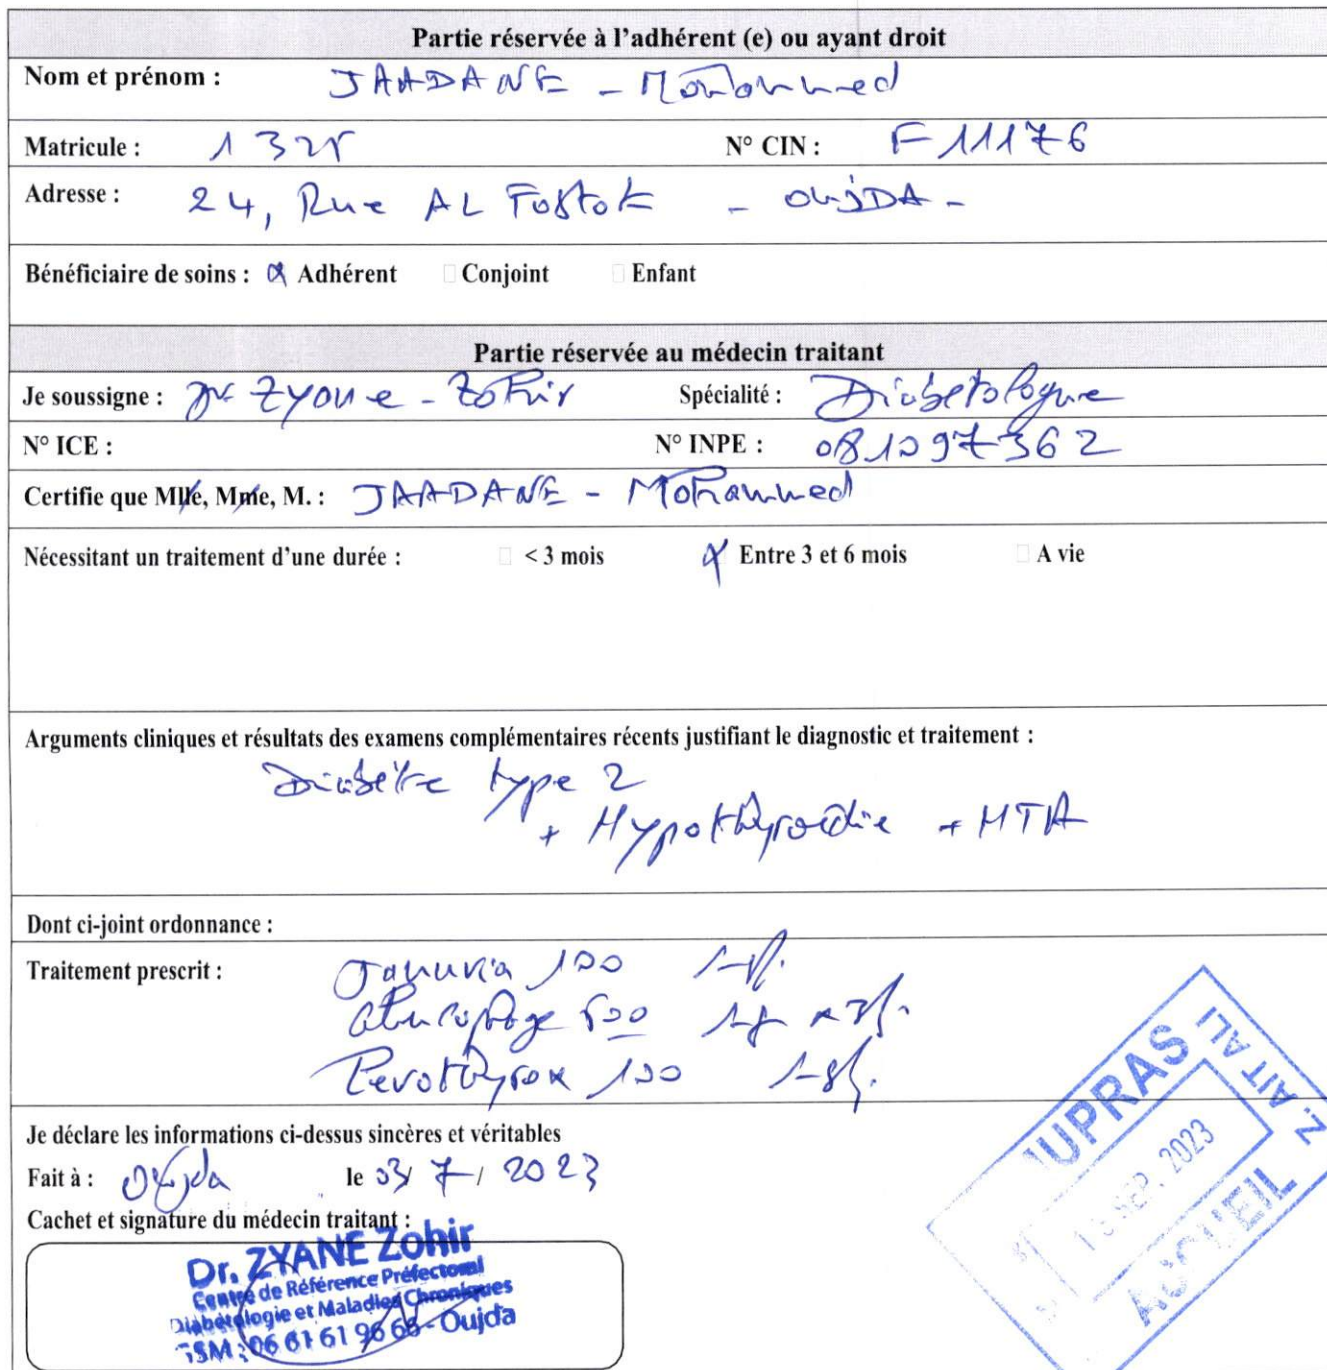 Partie réservée à l'adhérent (e) ou ayant droit
Nom et prénom : JAADANE - Mohammed
Matricule : 1325 N° CIN : F11176
Adresse : 24, Rue AL Fostok - OUJDA -
Bénéficiaire de soins : Adhérent Conjoint Enfant
Partie réservée au médecin traitant
Je soussigne : Dr Zyane - Zohir Spécialité : Diabétologue
N° ICE : N° INPE : 081097362
Certifie que Mlle, Mme, M. : JAADANE - Mohammed
Nécessitant un traitement d'une durée : < 3 mois Entre 3 et 6 mois A vie
Arguments cliniques et résultats des examens complémentaires récents justifiant le diagnostic et traitement :
Diabète type 2
+ Hypothyroïdie + HTA
Dont ci-joint ordonnance :
Traitement prescrit : Januvia 100 1/j.
Glucophage 500 x 3/j.
Levothyrox 100
Je déclare les informations ci-dessus sincères et véritables
Fait à : Oujda le 03/7/2023
Cachet et signature du médecin traitant :
Dr. ZYANE Zohir
Centre de Référence Préfectoral
Diabétologie et Maladies Chroniques
GSM : 06 61 61 96 66 - Oujda
MUPRAS
SEP. 2023
ACCUEIL
Z. AIT ALI